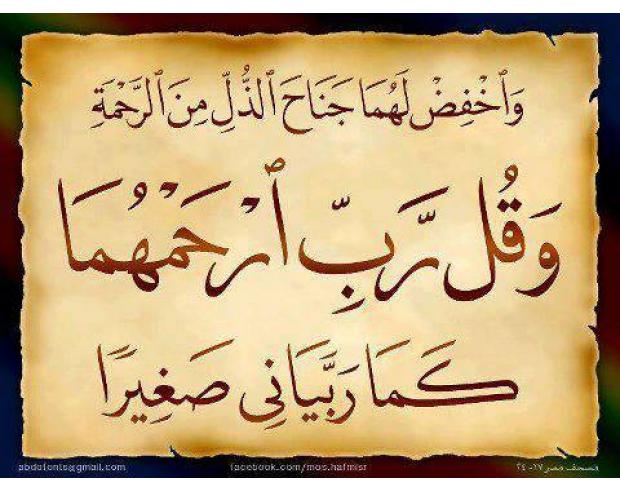 وَٱخْفِضْ لَهُمَا جَنَاحَ ٱلذُّلِّ مِنَ ٱلرَّحْمَةِ
وَقُل رَّبِّ ٱرْحَمْهُمَا
كَمَا رَبَّيَانِى صَغِيرًا
abdofonts@gmail.com facebook.com/mos.hafmisr مصحف مصر ١٧-٢٤